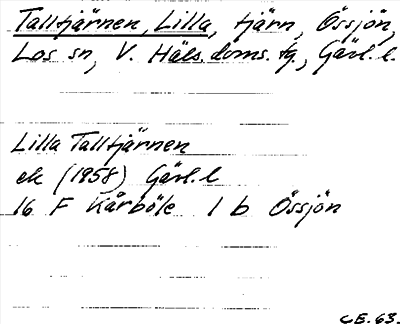 Talltjärnen, Lilla, tjärn, Össjön,
Los sn, V. Häls. doms. tg., Gävl. l.
Lilla Talltjärnen
ek (1958) Gävl. l
16 F Kårböle 1 b Össjön
CE. 63.